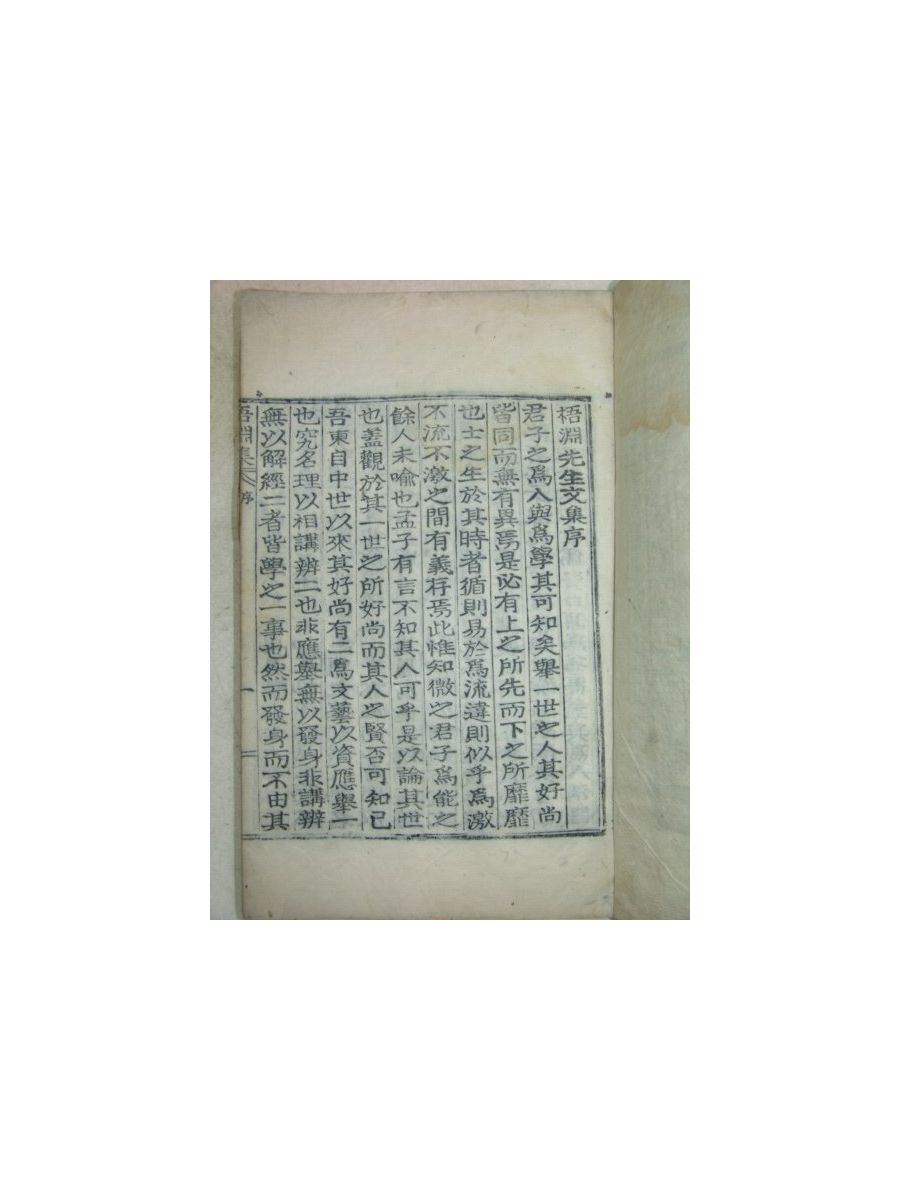 梧淵先生文集序
君子之爲人與爲學其可知矣舉一世之人其好尚
皆同而無有異焉是必有上之所先而下之所靡靡
也士之生於其時者循則易於爲流違則似乎爲激
不流不激之間有義存焉此惟知微之君子爲能之
餘人未喩也孟子有言不知其人可乎是以論其世
也盖觀於其一世之所好尚而其人之賢否可知已
吾東自中世以來其好尚有二焉文藝以資應舉一
也究名理以相講辨二也非應舉無以發身非講辨
無以解經二者皆學之一事也然而發身而不由其
梧淵集 序 一